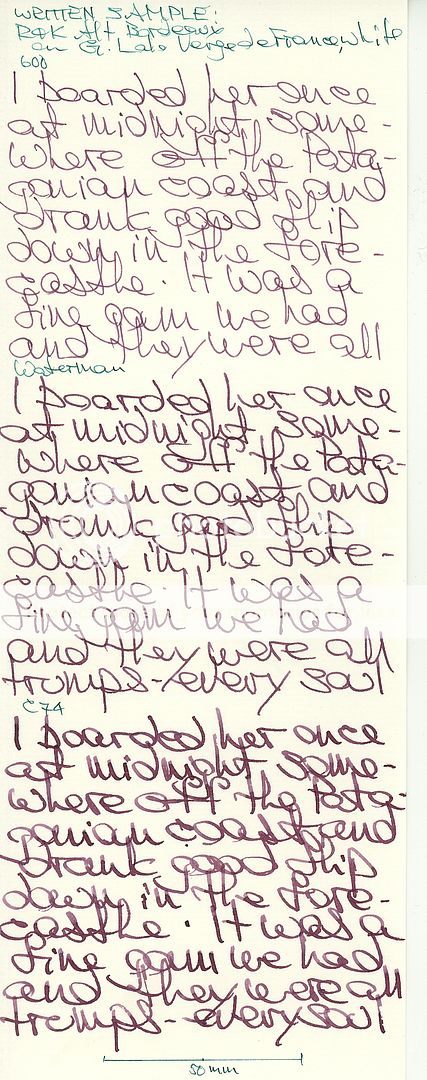 WRITTEN SAMPLE:
R&K Alt Bordeaux
on G. Lalo Verge de France, white
600
I boarded her once
at midnight some-
where off the Pata-
gonian coast, and
drank good flip
down in the fore-
castle. It was a
fine gam we had
and they were all
Waterman
I boarded her once
at midnight some-
where off the Pata-
gonian coast, and
drank good flip
down in the fore-
castle. It was a
fine gam we had
and they were all
trumps - every soul
C74
I boarded her once
at midnight some-
where off the Pata-
gonian coast, and
drank good flip
down in the fore-
castle. It was a
fine gam we had
and they were all
trumps - every soul
50 mm